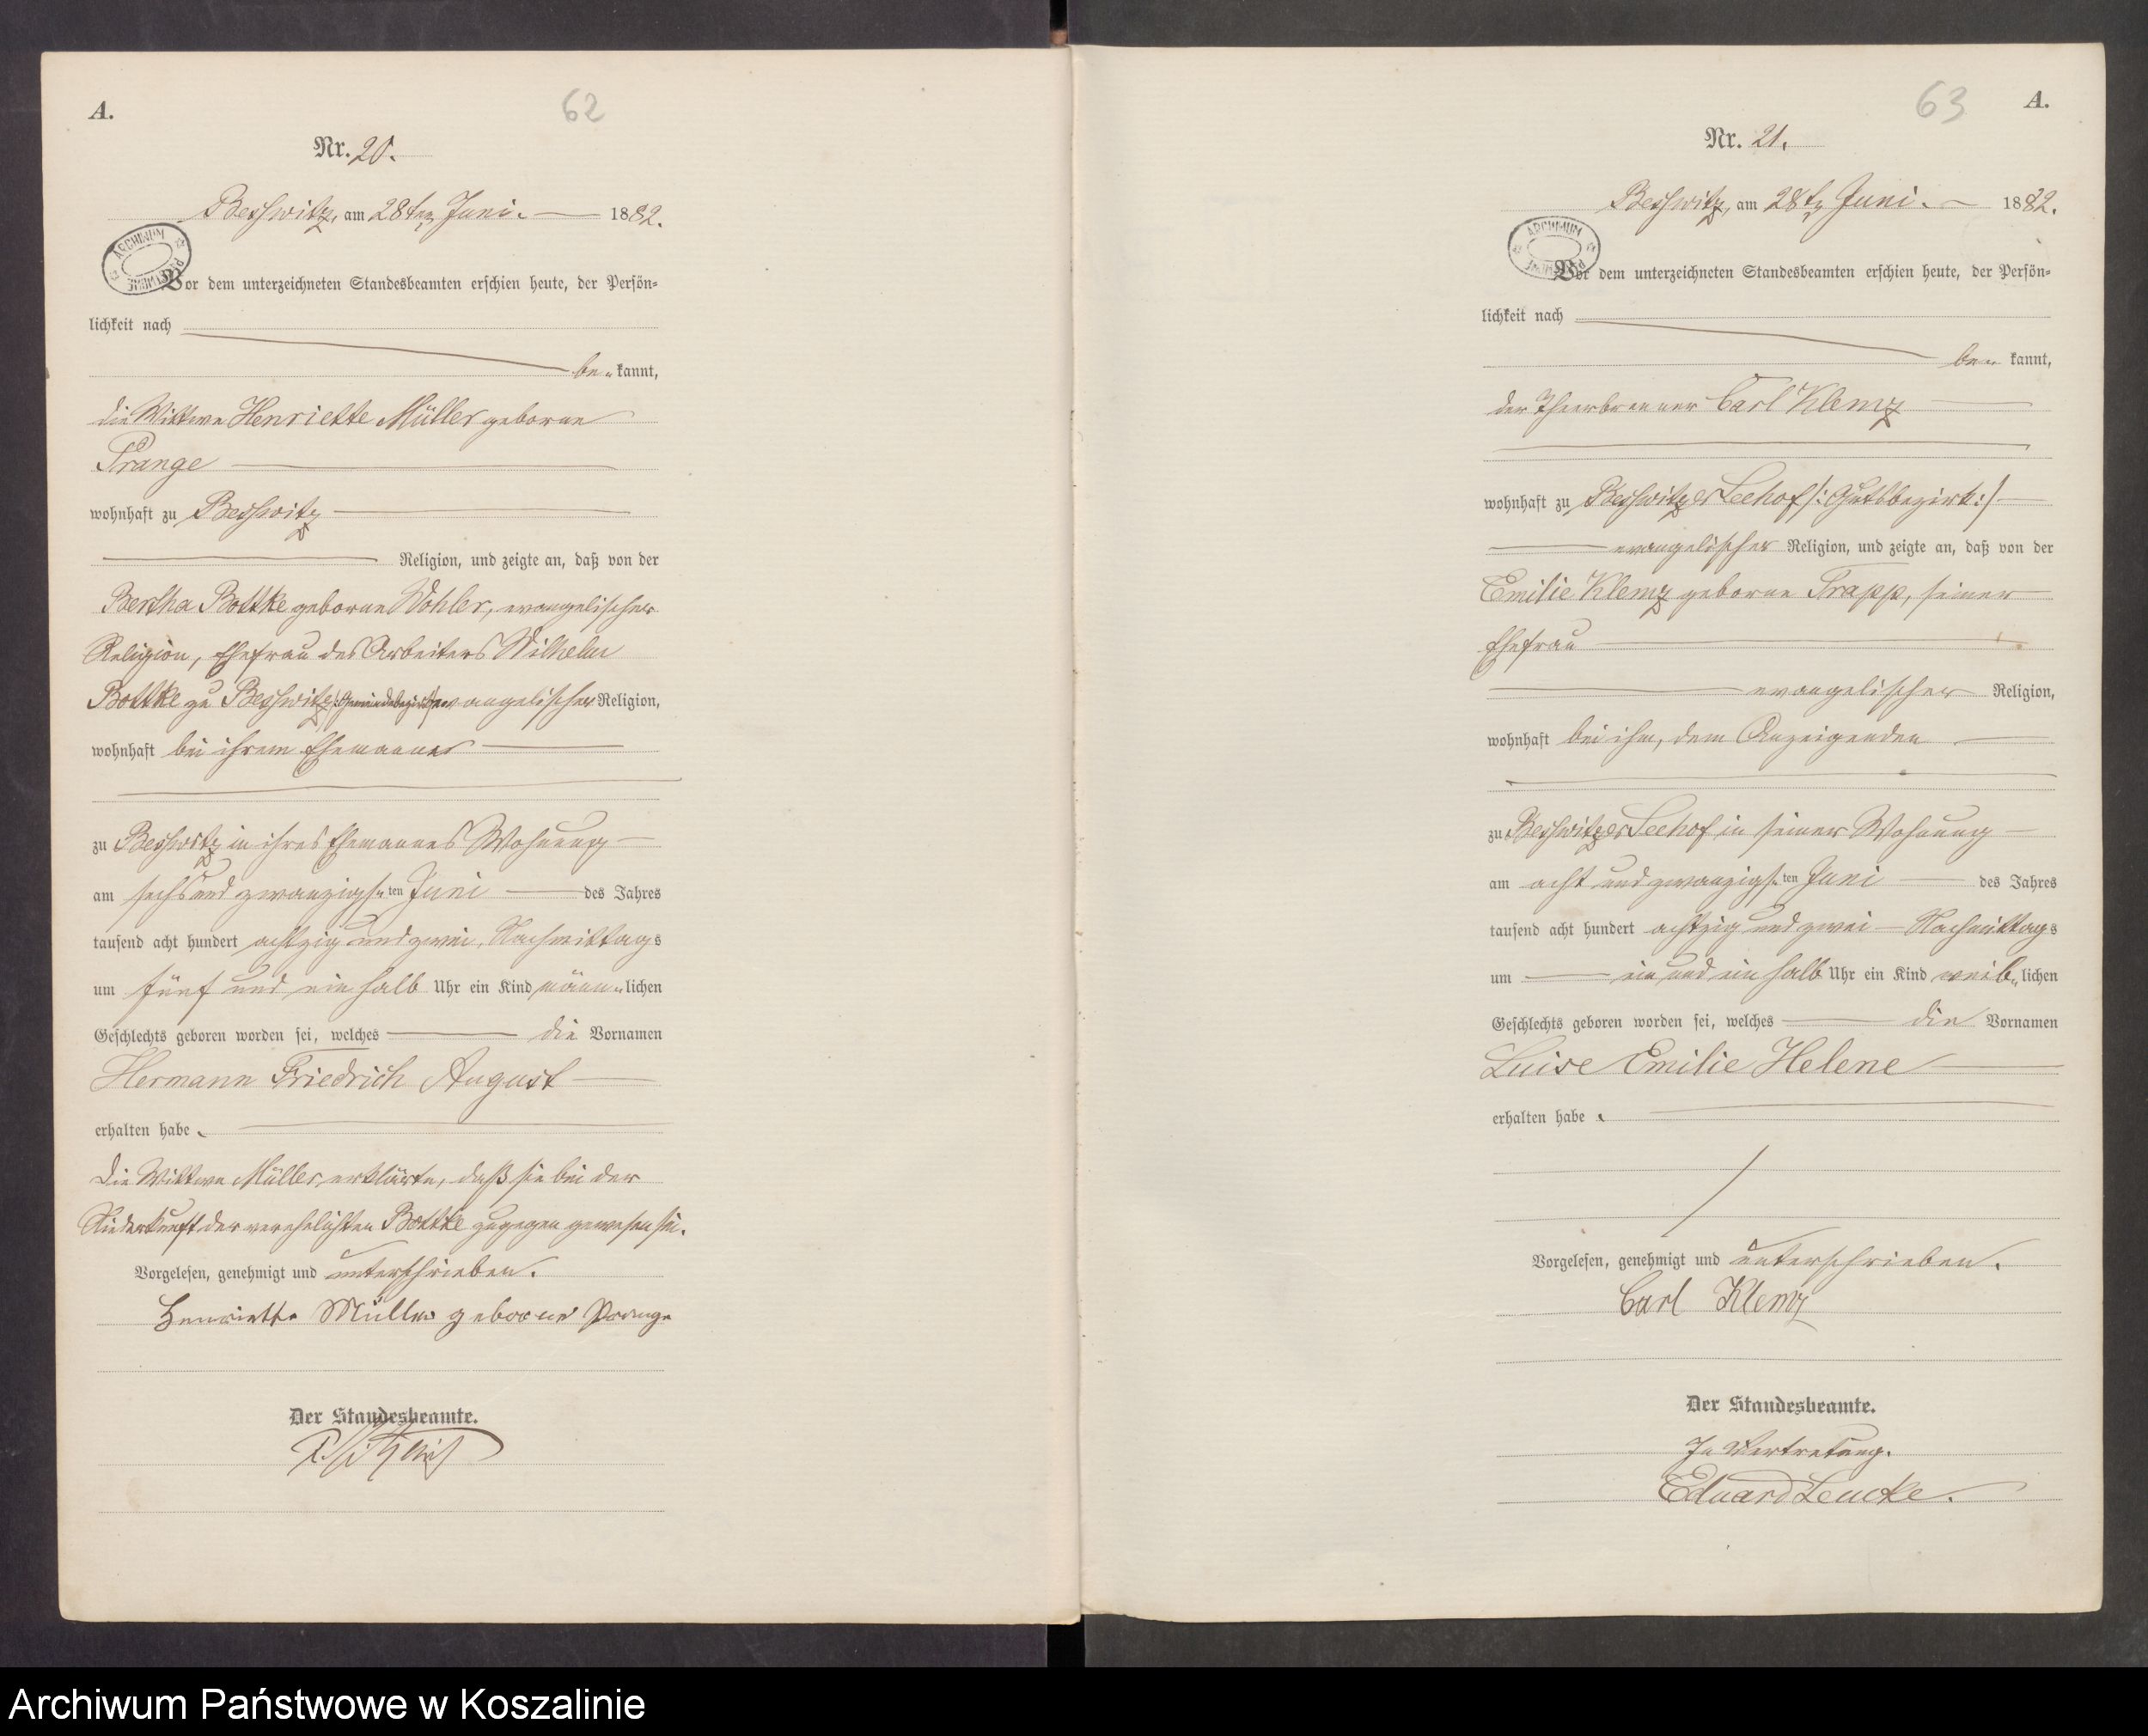 A.
62
Nr. 20.
Beßwitz, am 28ten Juni. 1882.
ARCHIWUM
Vor dem unterzeichneten Standesbeamten erschien heute, der Persön=
lichkeit nach
be= kannt,
die Wittwe Henriette Müller geborne
Prange
wohnhaft zu Beßwitz
Religion, und zeigte an, daß von der
Bertha Bottke geborne Wohler, evangelischer
Religion, Ehefrau des Arbeiters Wilhelm
Bottke zu Beßwitz /:Gemeindebezirk:/ evangelischer Religion,
wohnhaft bei ihrem Ehemanne
zu Beßwitz in ihres Ehemannes Wohnung
am sechs und zwanzigs=ten Juni des Jahres
tausend acht hundert achtzig und zwei, Nachmittags
um fünf und ein halb Uhr ein Kind männ=lichen
Geschlechts geboren worden sei, welches die Vornamen
Hermann Friedrich August
erhalten habe.
Die Wittwe Müller erklärte, daß sie bei der
Niederkunft der verehelichten Bottke zugegen gewesen sei.
Vorgelesen, genehmigt und unterschrieben.
Henriette Müller geborne Prange
Der Standesbeamte.
A.
63
Nr. 21.
Beßwitz, am 28ten Juni. 1882.
ARCHIWUM
Vor dem unterzeichneten Standesbeamten erschien heute, der Persön=
lichkeit nach
be= kannt,
der Theerbrenner Carl Klemz
wohnhaft zu Beßwitzer Seehof /:Gutsbezirk:/
evangelischer Religion, und zeigte an, daß von der
Emilie Klemz geborne Trapp, seiner
Ehefrau
evangelischer Religion,
wohnhaft bei ihm, dem Anzeigenden
zu Beßwitzer Seehof in seiner Wohnung
am acht und zwanzigs=ten Juni des Jahres
tausend acht hundert achtzig und zwei Nachmittags
um ein und ein halb Uhr ein Kind weib=lichen
Geschlechts geboren worden sei, welches die Vornamen
Luise Emilie Helene
erhalten habe.
Vorgelesen, genehmigt und unterschrieben.
Carl Klemz
Der Standesbeamte.
In Vertretung.
Eduard Leucke.
Archiwum Państwowe w Koszalinie